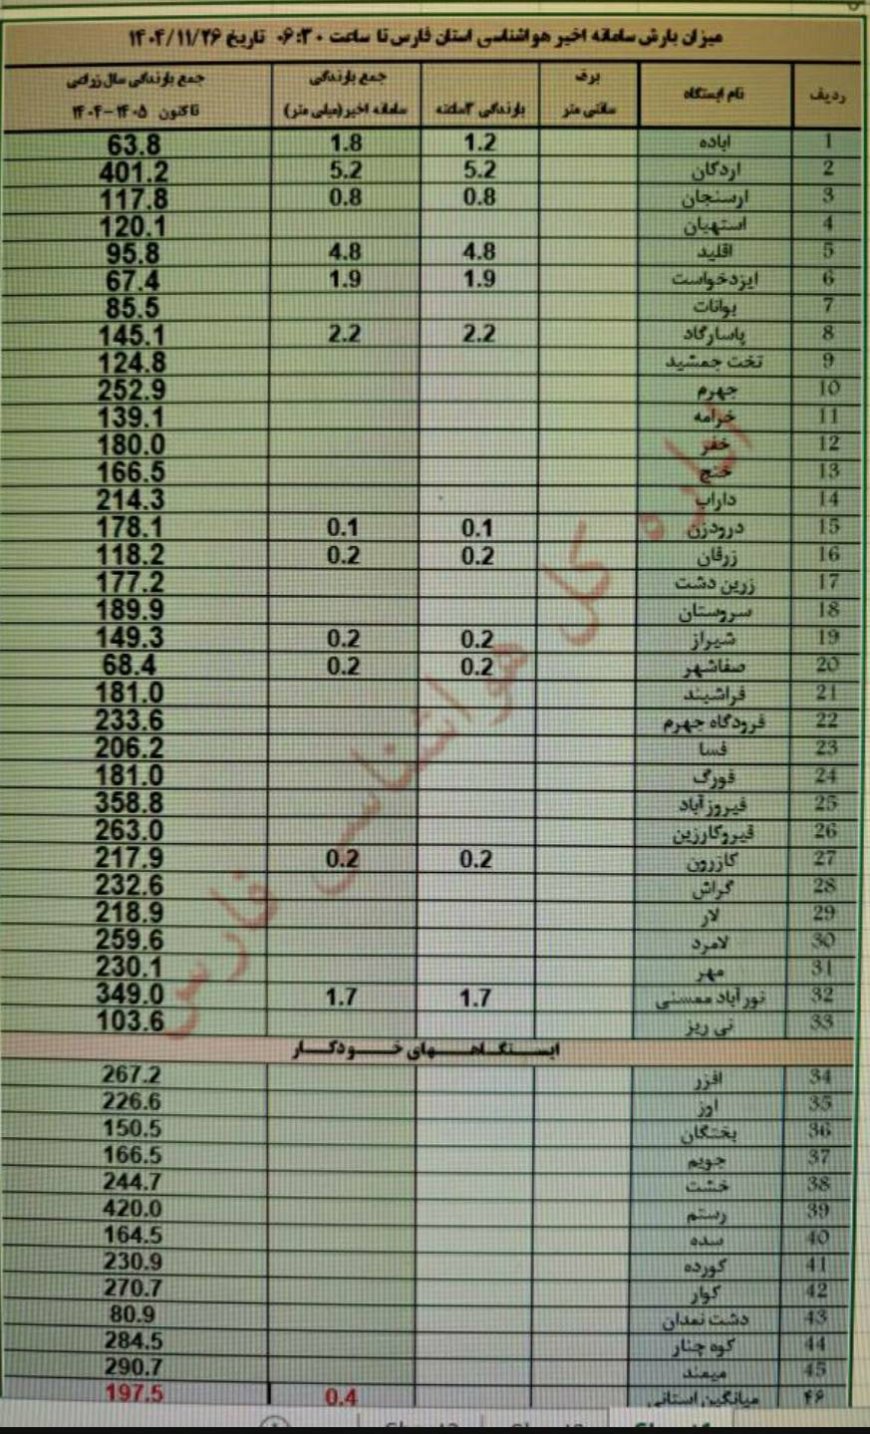 میزان بارش سامانه اخیر هواشناسی استان فارس تا ساعت ۰۶:۳۰ تاریخ ۱۴۰۴/۱۱/۲۶
ردیف نام ایستگاه برف سانتی متر بارندگی ۳ساعته جمع بارندگی سامانه اخیر(میلی متر) جمع بارندگی سال زراعی تاکنون ۱۴۰۵-۱۴۰۴
1 اباده 1.2 1.8 63.8
2 اردکان 5.2 5.2 401.2
3 ارسنجان 0.8 0.8 117.8
4 استهبان 120.1
5 اقلید 4.8 4.8 95.8
6 ایزدخواست 1.9 1.9 67.4
7 بوانات 85.5
8 پاسارگاد 2.2 2.2 145.1
9 تخت جمشید 124.8
10 جهرم 252.9
11 خرامه 139.1
12 خفر 180.0
13 خنج 166.5
14 داراب 214.3
15 درودزن 0.1 0.1 178.1
16 زرقان 0.2 0.2 118.2
17 زرین دشت 177.2
18 سروستان 189.9
19 شیراز 0.2 0.2 149.3
20 صفاشهر 0.2 0.2 68.4
21 فراشبند 181.0
22 فرودگاه جهرم 233.6
23 فسا 206.2
24 فورگ 181.0
25 فیروزآباد 358.8
26 قیروکارزین 263.0
27 کازرون 0.2 0.2 217.9
28 گراش 232.6
29 لار 218.9
30 لامرد 259.6
31 مهر 230.1
32 نورآباد ممسنی 1.7 1.7 349.0
33 نی ریز 103.6
ایستگاههای خودکار
34 افزر 267.2
35 اوز 226.6
36 بختگان 150.5
37 جویم 166.5
38 خشت 244.7
39 رستم 420.0
40 سده 164.5
41 کورده 230.9
42 کوار 270.7
43 دشت نمدان 80.9
44 کوه چنار 284.5
45 میمند 290.7
۴۶ میانگین استانی 0.4 197.5
اداره کل هواشناسی فارس